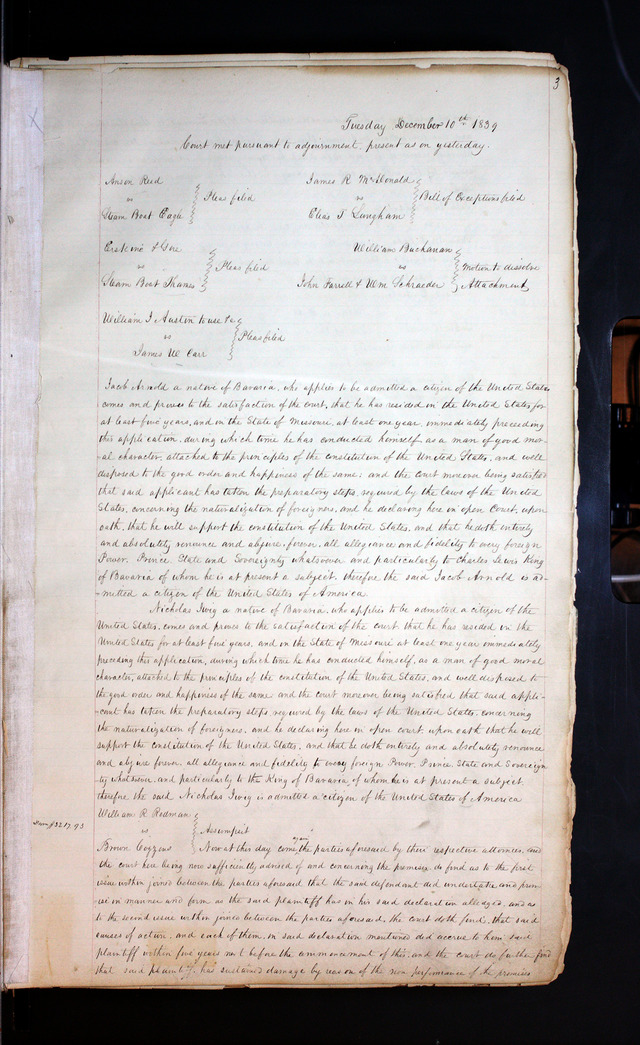 3
Tuesday December 10th 1839
Court met pursuant to adjournment, present as on yesterday.
Anson Reed
vs
Steam Boat Eagle
Pleas filed
James R McDonald
vs
Elias T Langham
Bill of Exceptions filed
Erskine & Gore
vs
Steam Boat Thames
Pleas filed
William Buchanan
vs
John Farrell & Wm Schraeder
Motion to dissolve
Attachment
William J Austin to use &c
vs
James W. Carr
Pleas filed
Jacob Arnold a native of Bavaria, who applies to be admitted a citizen of the United States
comes and proves to the satisfaction of the court, that he has resided in the United States for
at least five years, and in the State of Missouri, at least one year immediately preceeding
this application, during which time he has conducted himself as a man of good mor-
al character, attached to the principles of the constitution of the United States, and well
disposed to the good order and happiness of the same; and the court moreover being satisfied
that said applicant has taken the preparatory steps, required by the laws of the United
States, concerning the naturalization of foreigners, and he declaring here in open court, upon
oath, that he will support the constitution of the United States, and that he doth entirely
and absolutely renounce and abjure, forever, all allegiance and fidelity to every foreign
Power, Prince, State and Sovereignty whatsoever and particularly to Charles Lewis King
of Bavaria of whom he is at present a subject. therefore the said Jacob Arnold is ad-
mitted a citizen of the United States of America
Nicholas Twig a native of Bavaria, who applies to be admitted a citizen of the
United States, comes and proves to the satisfaction of the court that he has resided in the
United States for at least five years, and in the State of Missouri at least one year immediately
preceding this application, during which time he has conducted himself, as a man of good moral
character, attached to the principles of the constitution of the United States, and well disposed to
the good order and happiness of the same and the court moreover being satisfied that said appli-
cant has taken the preparatory steps, required by the laws of the United States, concerning
the naturalization of foreigners, and he declaring here in open court upon oath that he will
support the constitution of the United States, and that he doth entirely and absolutely renounce
and abjure forever, all allegiance and fidelity to every foreign Power, Prince, State and Sovereign-
ty whatsoever, and particularly to the King of Bavaria, of whom he is at present a subject,
therefore the said Nicholas Twig is admitted a citizen of the United States of America
William R Redman
vs
Brown Cozzens
Assumpsit
$3217.93
Now at this day come again the parties aforesaid by their respective attornies, and
the court here being now sufficiently advised of and concerning the premises do find as to the first
issue within joined between the parties aforesaid that the said defendant did undertake and prom-
ise in manner and form as the said plaintiff has in his said declaration alledged, and as
to the second issue within joined between the parties aforesaid, the court doth find, that said
causes of action, and each of them, in said declaration mentioned did accrue to him said
plaintiff within five years next before the commencement of this, and the court do further find
that said plaintiff has sustained damage by reason of the non performance of the promises